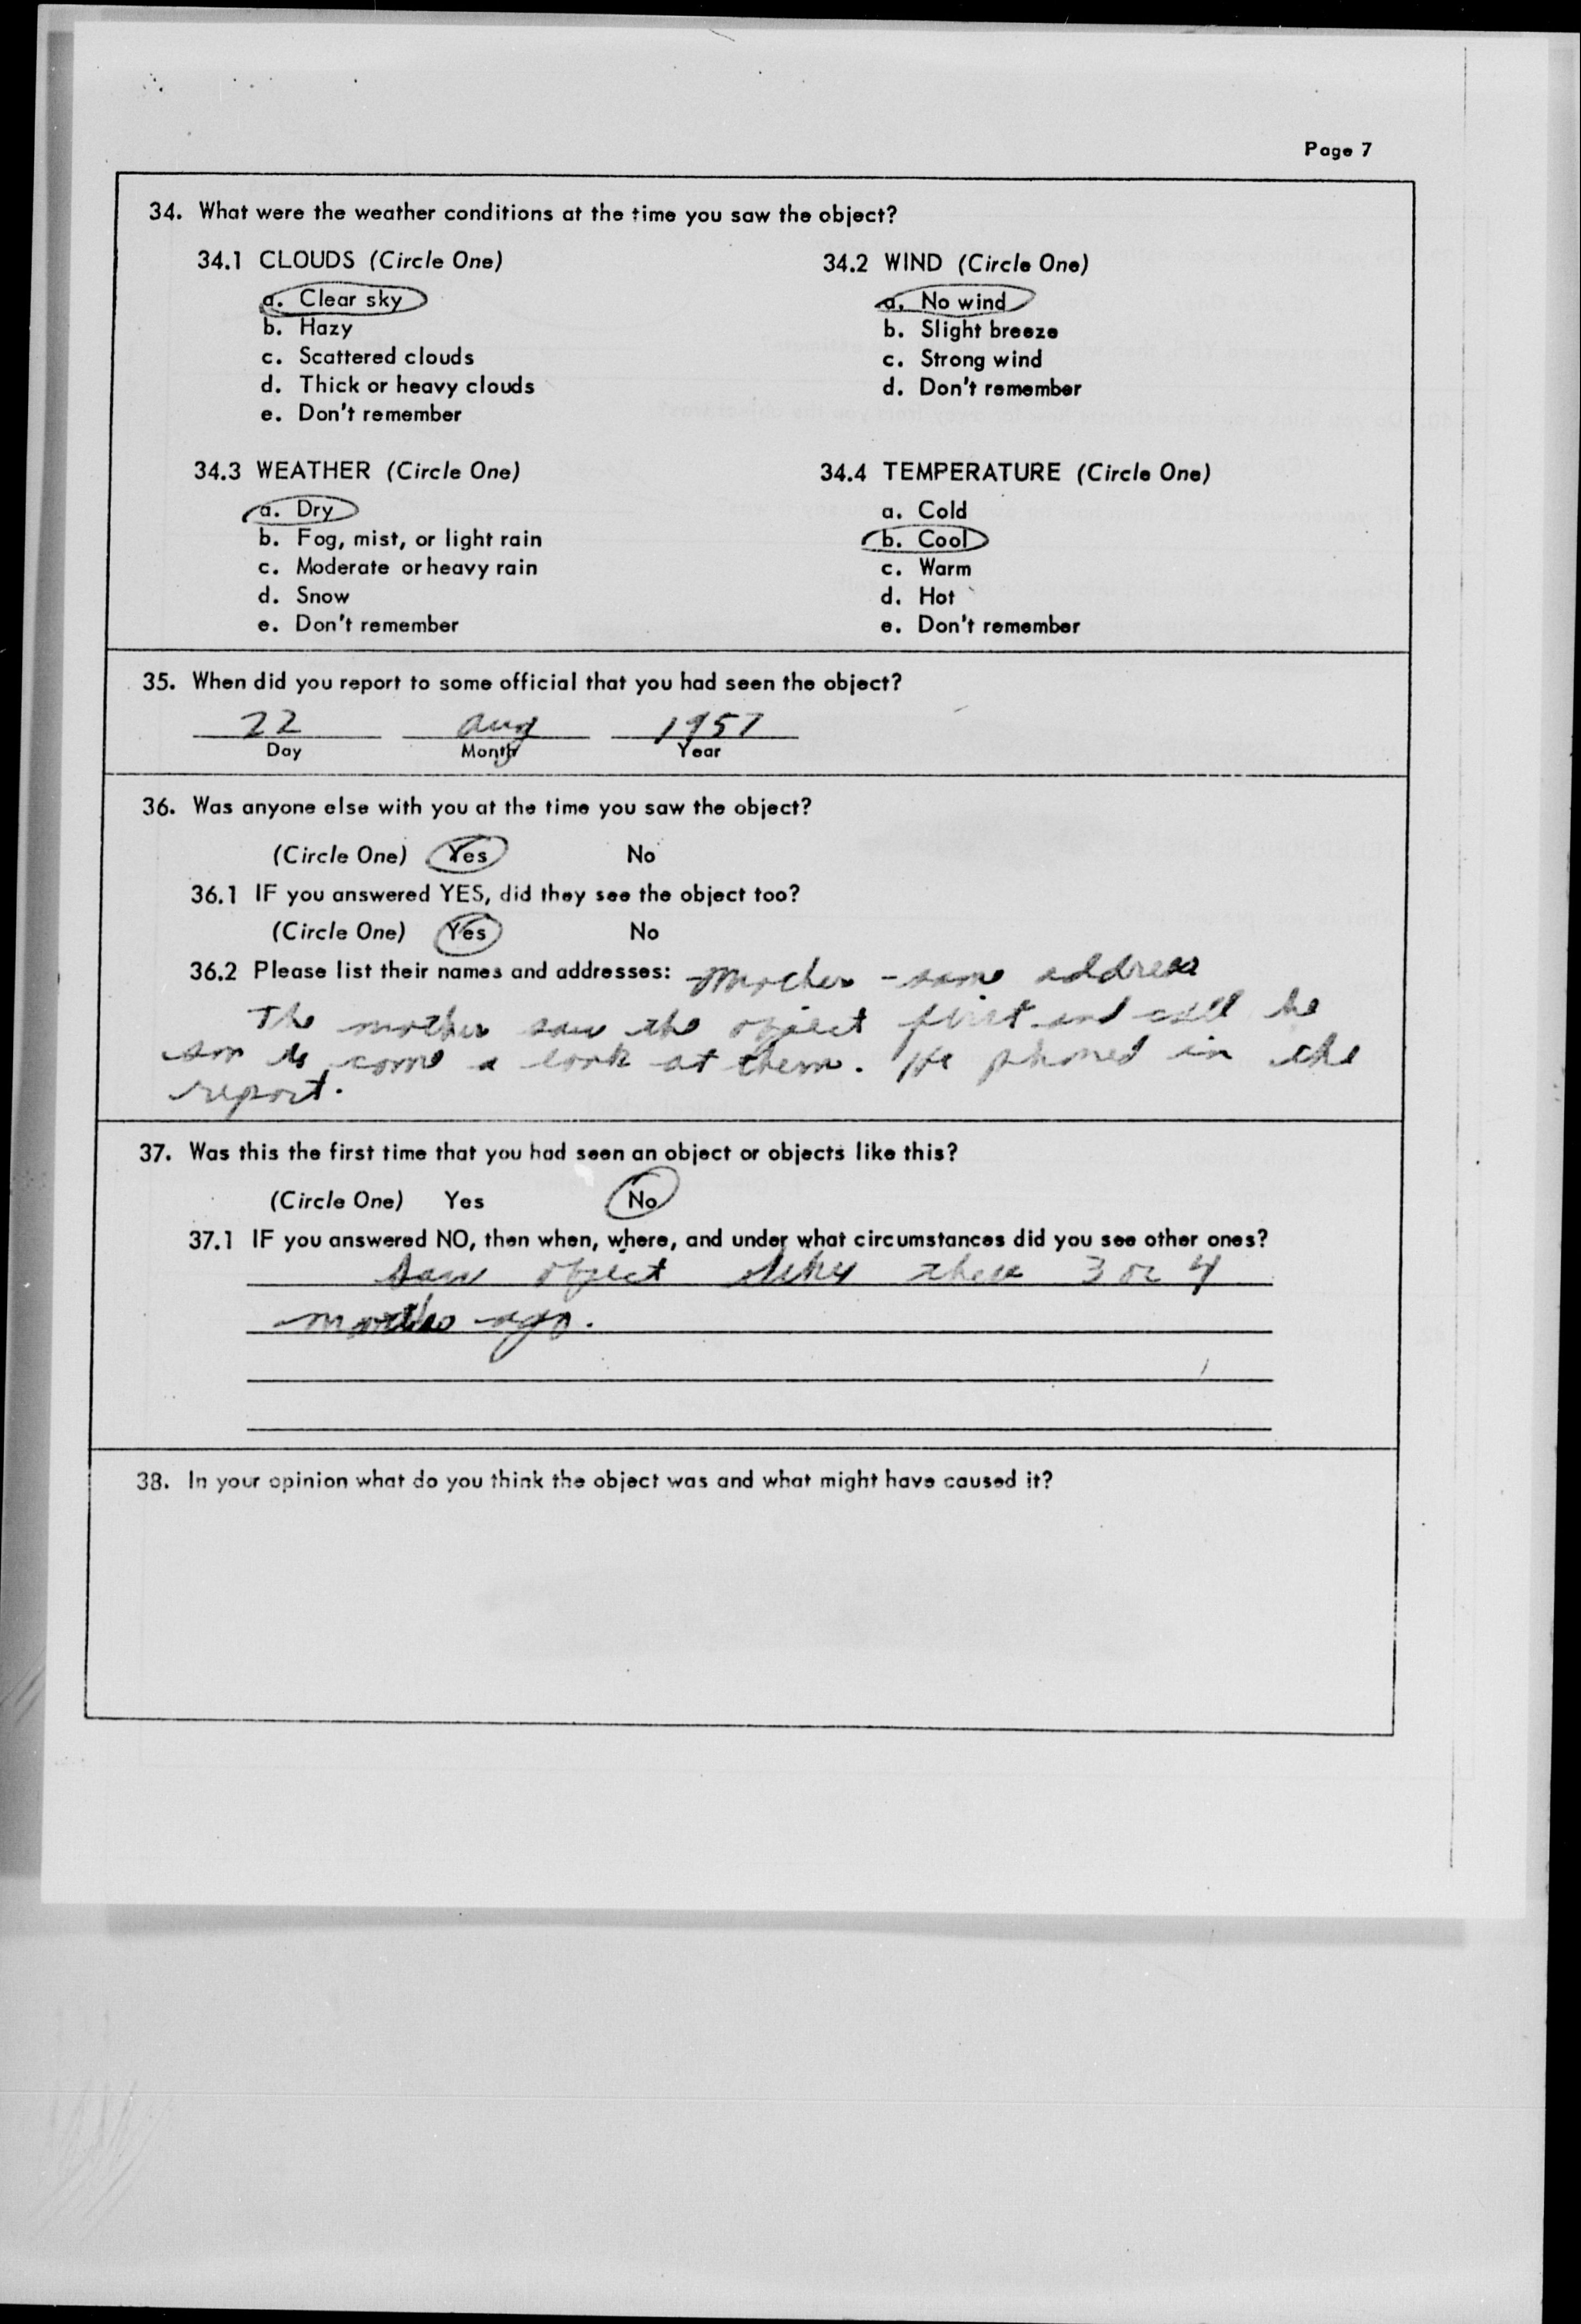 Page 7
34. What were the weather conditions at the time you saw the object?
34.1 CLOUDS (Circle One)
a. Clear sky
b. Hazy
c. Scattered clouds
d. Thick or heavy clouds
e. Don't remember
34.2 WIND (Circle One)
a. No wind
b. Slight breeze
c. Strong wind
d. Don't remember
34.3 WEATHER (Circle One)
a. Dry
b. Fog, mist, or light rain
c. Moderate or heavy rain
d. Snow
e. Don't remember
34.4 TEMPERATURE (Circle One)
a. Cold
b. Cool
c. Warm
d. Hot
e. Don't remember
35. When did you report to some official that you had seen the object?
22 Aug 1957
Day Month Year
36. Was anyone else with you at the time you saw the object?
(Circle One) Yes No
36.1 IF you answered YES, did they see the object too?
(Circle One) Yes No
36.2 Please list their names and addresses: Mother - same address
The mother saw the object first and call he
son to come a look at them. He phoned in the
report.
37. Was this the first time that you had seen an object or objects like this?
(Circle One) Yes No
37.1 IF you answered NO, then when, where, and under what circumstances did you see other ones?
Saw object like these 3 or 4
months ago.
38. In your opinion what do you think the object was and what might have caused it?